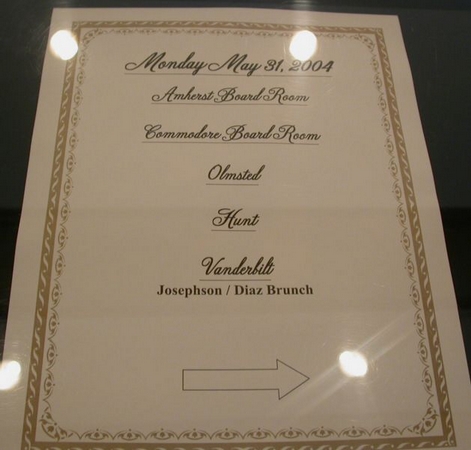 Monday May 31, 2004
Amherst Board Room
Commodore Board Room
Olmsted
Hunt
Vanderbilt
Josephson / Diaz Brunch